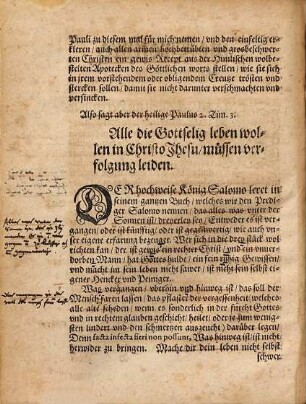 Pauli zu diesem mal für mich nemen / und den einfeltig er-
kleren / auch allen armen hochbetrübten und grosbeschwer-
ten Christen ein gewis Recept aus der Himlischen wolbe-
stelten Apotecken des Göttlichen worts stellen / wie sie sich
in jrem vorstehendem oder obligenden Creutz trösten und
stercken sollen / damit sie nicht darunter verschmachten und
versincken.
Also sagt aber der heilige Paulus 2. Tim. 3.
Alle die Gottselig leben wol-
len in Christo Jhesu / müssen ver-
folgung leiden.
DER hochweise König Salomo leret in
seinem gantzen Buch / welches wir den Predi-
ger Salomo nennen / das alles was unter der
Sonnen ist / dreyerley sey / Entweder es ist ver-
gangen / oder ist künfftig / oder ist gegenwertig / wie auch un-
ser eigene erfarung bezeuget. Wer sich in die drey stück wol
richten kan / der ist gewis ein rechter Christ / und ein unver-
dorben Mann / hat Gottes hulde / ein fein Gewissen /
und macht im sein leben nicht sawer / ist nicht sein selbst ei-
gener Hencker und Peiniger.
Was vergangen / verthun und hinweg ist / das soll der
Mensch faren lassen / das pflaster des vergessenheit welches
alle alte schäden / wenn es sonderlich in der furcht Gottes
und in rechtem glauben geschicht / heilet / oder ja zum wenig-
sten lindert und den schmertzen auszeucht / darüber legen /
Denn facta infecta fieri non possunt, Was hinweg ist / ist nicht
herwider zu bringen. Macht dir dein leben nicht selbst
schwer.